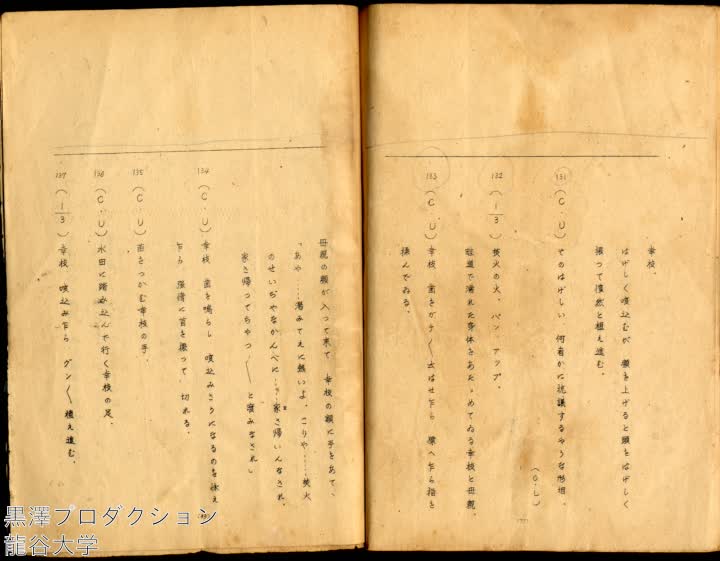 幸枝、
はげしく咳込むが 顔を上げると頭をはげしく
振って憤然と植え進む。
131 (C・U) そのはげしい 何者かに抗議するやうな形相。
(O・L)
132 (1/3) 焚火の火、パン・アップ。
畦道で濡れた身体をあたゝめてゐる幸枝と母親。
133 (C・U) 幸枝 歯をガチ〳〵云はせ乍ら 震へ乍ら指を
揉んでゐる。
母親の顔が入って来て 幸枝の額に手をあて、
「あや……湯みてえに熱いよ、こりや……焚火
のせいぢやなかんべに…家さ帰いんなされ、
家さ帰ってちやつ〳〵と寝みなされ」
134 (C・U) 幸枝 歯を鳴らし 咳込みさうになるのを怺え
乍ら 強情に首を振って、切れる。
135 (C・U) 苗をつかむ幸枝の手。
136 (C・U) 水田に踏み込んで行く幸枝の足。
137 (1/3) 幸枝 咳込み乍ら グン〳〵植え進む。
黒澤プロダクション
龍谷大学